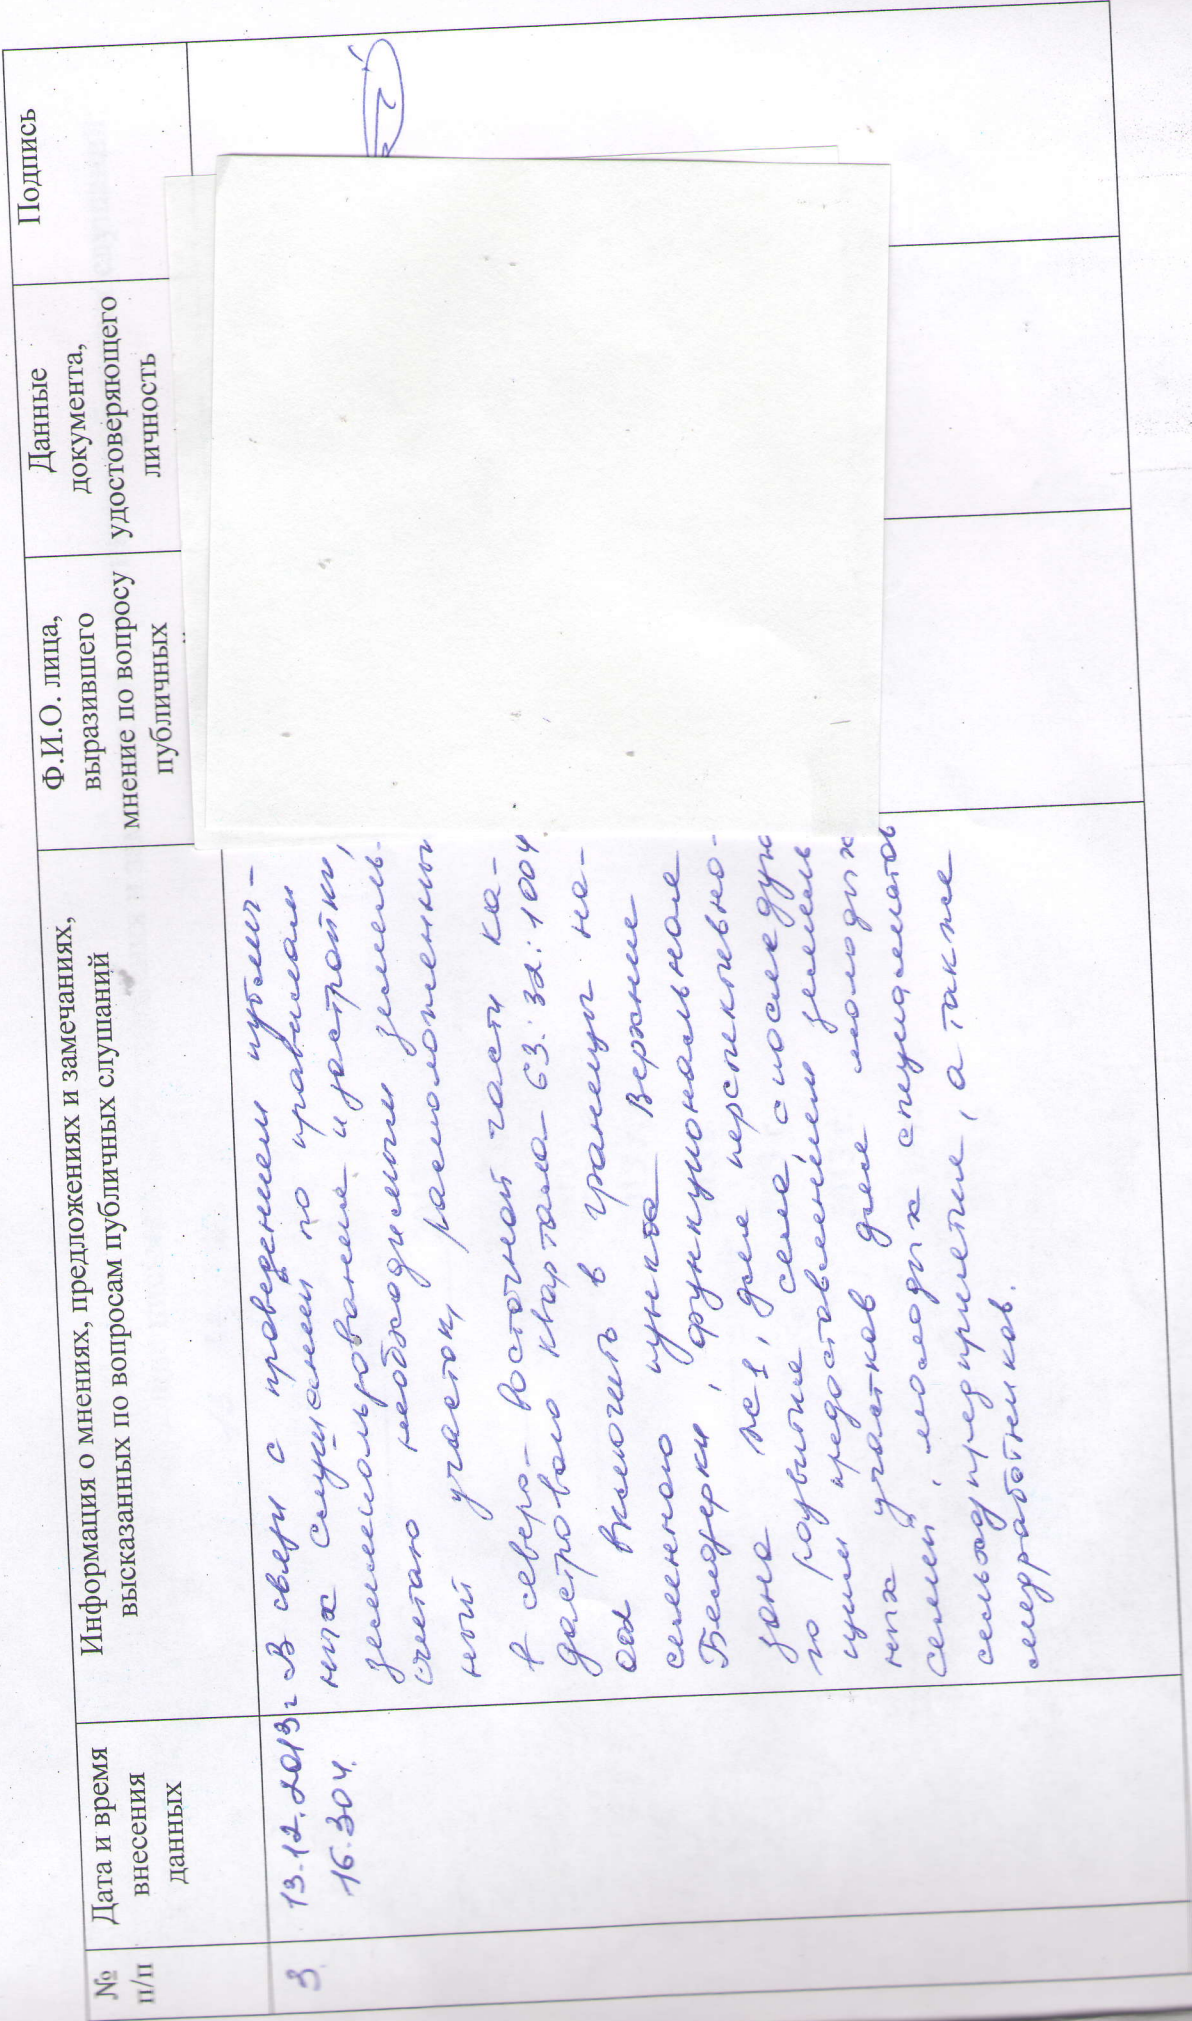 №
п/п
Дата и время
внесения
данных
Информация о мнениях, предложениях и замечаниях,
высказанных по вопросам публичных слушаний
Ф.И.О. лица,
выразившего
мнение по вопросу
публичных
Данные
документа,
удостоверяющего
личность
Подпись
3
13.12.2013г
16.30ч.
В связи с проведением публич-
ных слушаний по правилам
землепользование и застройки,
считаю необходимым земель-
ный участок, расположенный
в северо-восточной части ка-
дастрового квартала 63:32:1004
включить в границы на-
селенного пункта Верхние
Белозерки, функциональная
зона Ж1, для перспективно-
го развитие села, с последую
щим предоставлением земель
ных участков для молодых
семей, молодых специалистов
сельхозпредприятие, а также
медработников.